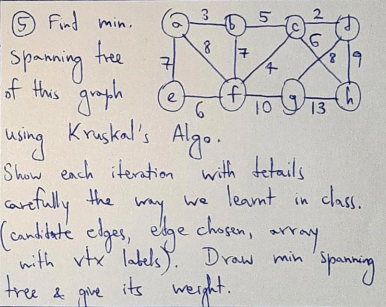 ⑤ Find min.
spanning tree
of this graph
using Kruskal's Algo.
Show each iteration with details
carefully the way we learnt in class.
(candidate edges, edge chosen, array
with vtx labels). Draw min spanning
tree & give its weight.
a 3 b 5 c 2 d
7 8 7 4 6 8 9
e 6 f 10 g 13 h